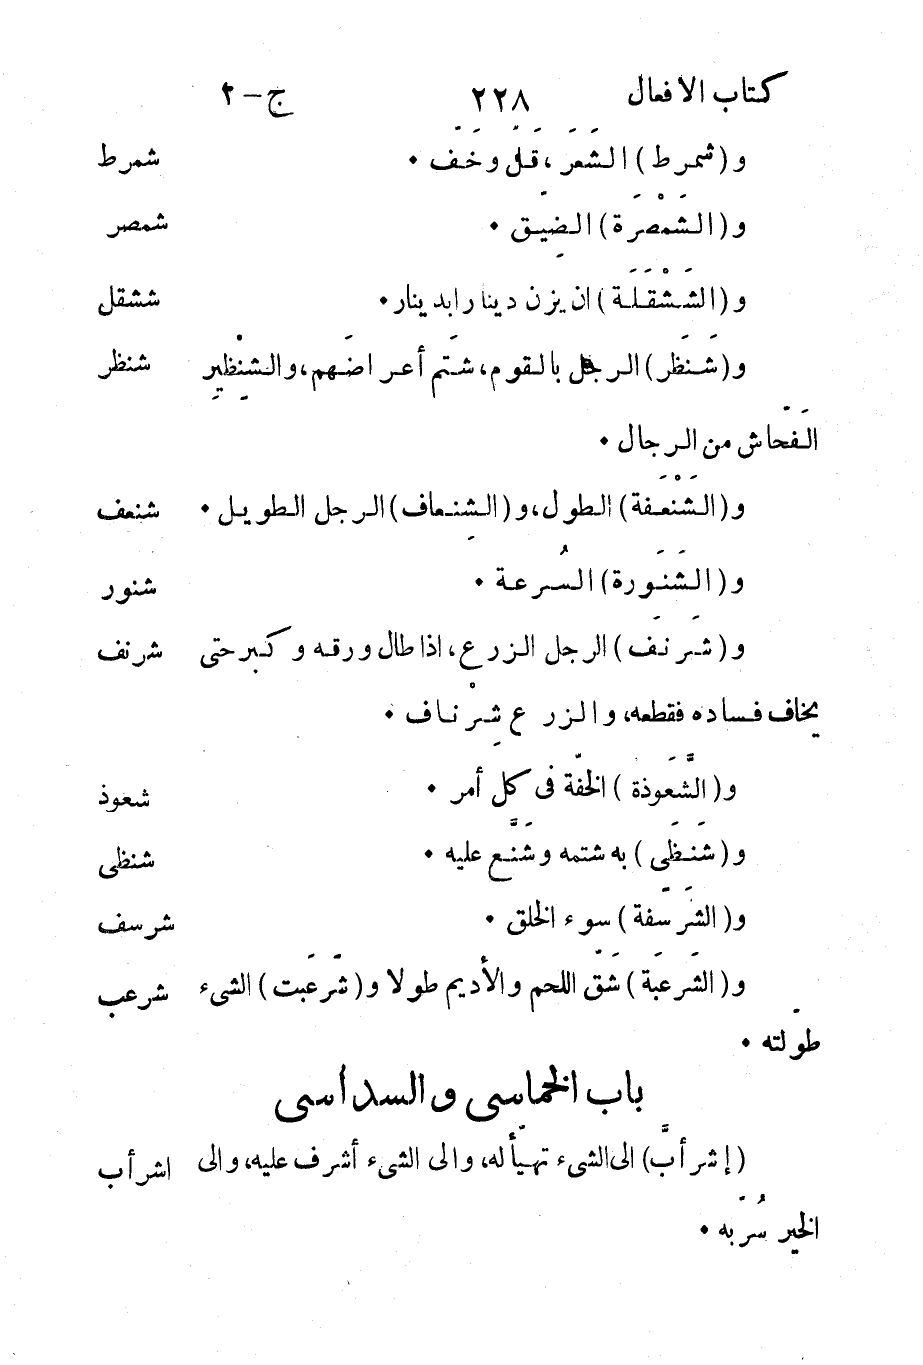 كتاب الافعال ٢٢٨ ج-٢
و (شمرط) الشَعَرَ، قَلُّ وخَفَّ • شمرط
و (الشَمْصَرَة) الضِيّق • شمصر
و (الشَشْقَلَة) ان يزن دينارا بدينار • ششقل
و (شَنَظَر) الرجل بالقوم، شَتَم أعراضَهم، والشِنْظِير شنظر
الفَحّاش من الرجال •
و (الشَنْعَفة) الطول، و (الشِنعاف) الرجل الطويل • شنعف
و (الشَنَورة) السُرعة • شنور
و (شَرنَف) الرجل الزرع، اذا طال ورقه وكبر حتى شرنف
يخاف فساده فقطعه، والزرع شِرْناف •
و (الشَّعَوذة) الخفّة فى كل أمر • شعوذ
و (شَنظَى) به شتمه وشَنَّع عليه • شنظى
و (الشَرسّفة) سوء الخلق • شرسف
و (الشَرعَبة) شَقّ اللحم والأديم طولا و (شَرعَبت) الشىء شرعب
طوّلته •
باب الخماسى والسداسى
(إشرأَبّ) الى الشىء تهيّأ له، والى الشىء أشرف عليه، والى اشرأب
الخير سُرّ به •